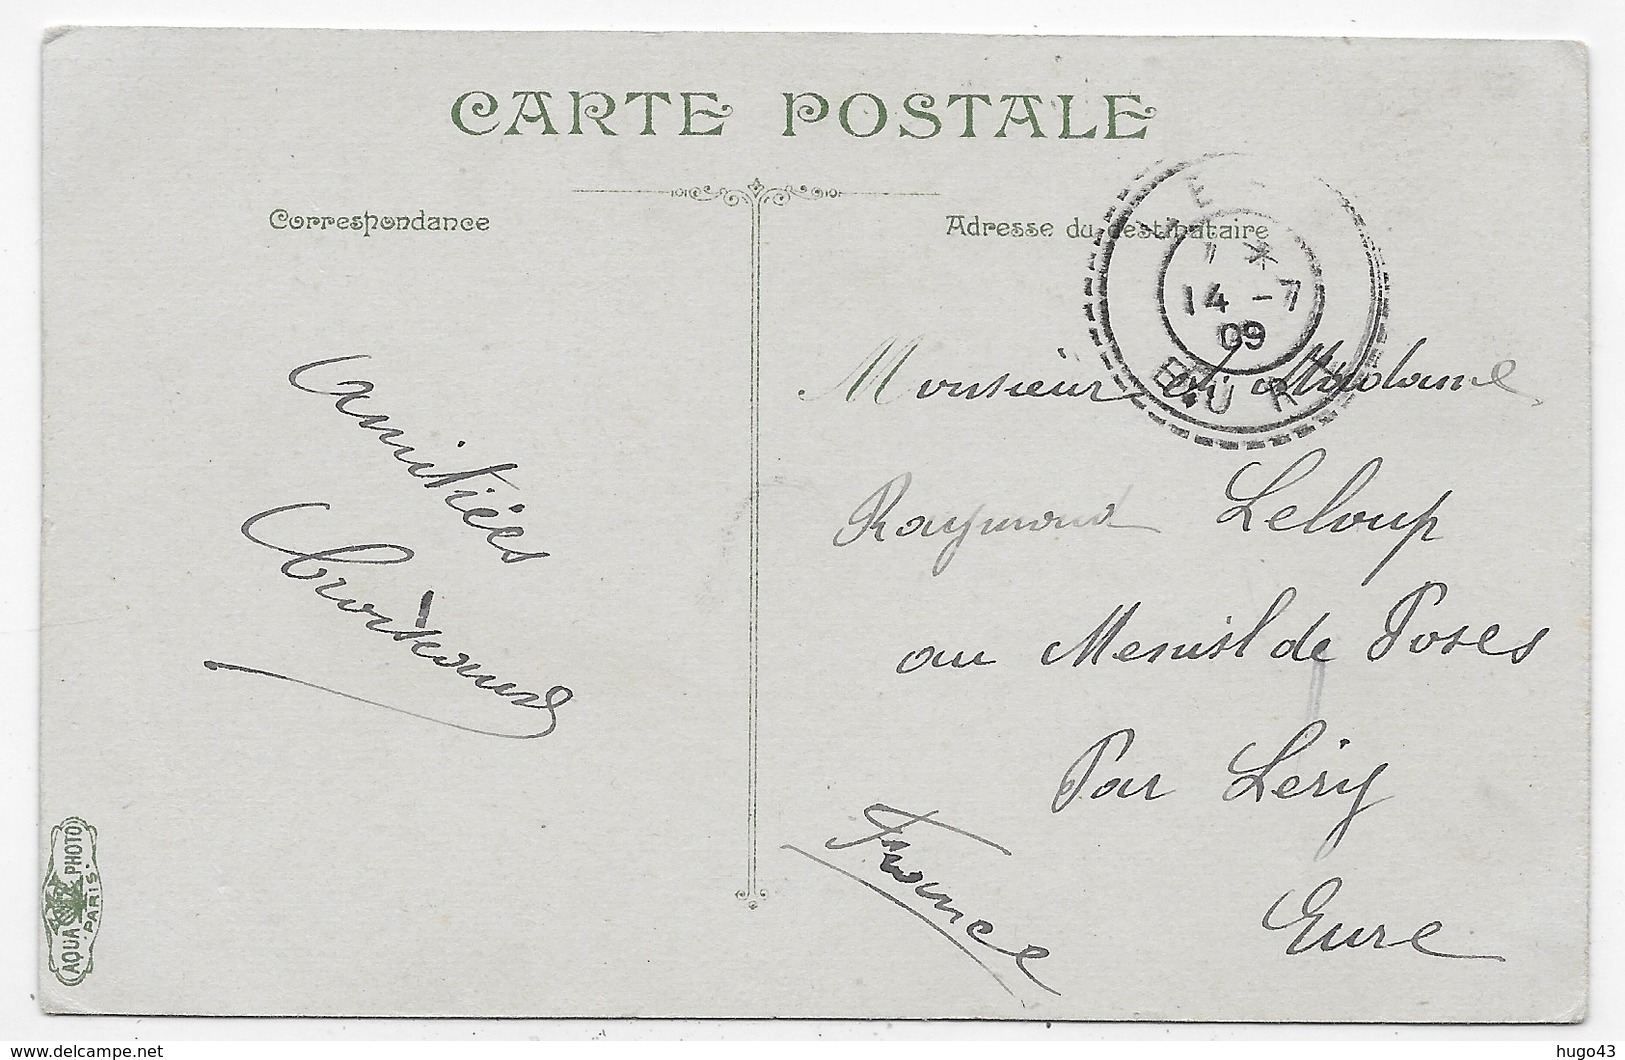 CARTE POSTALE
Correspondance
Adresse du destinataire
7 *
14 - 7
09
EURE
Amitiés
Monsieur et Madame
Raymond Leloup
au Mesnil de Poses
Par Léry
Eure
France
AQUA PHOTO
PARIS
hugo43
delcampe.net